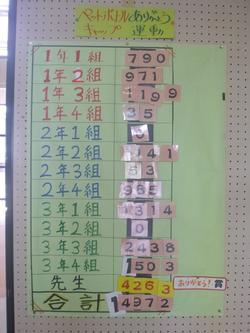 ペットボトル ありがとう
キャップ 運動
1年1組 790
1年2組 971
1年3組 1199
1年4組 35
2年1組
2年2組
2年3組
2年4組 965
3年1組 1314
3年2組 0
3年3組 2436
3年4組 1503
先生 4263 ありがとう!賞
合計 14972